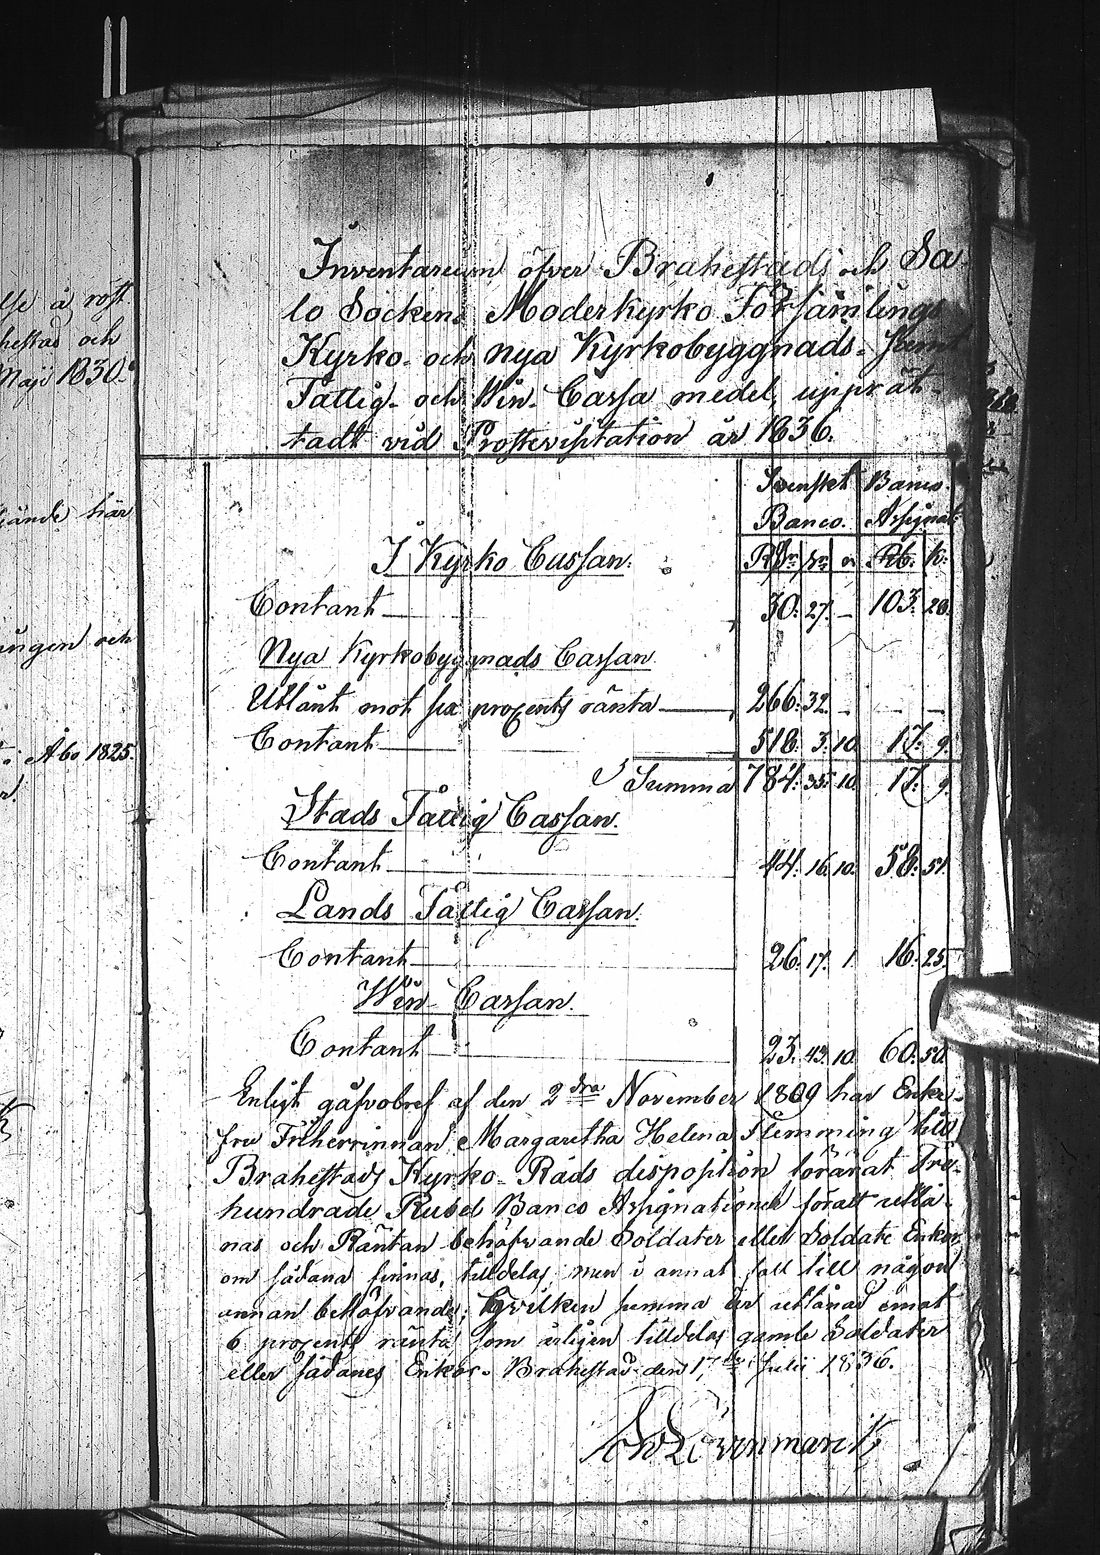 lse å rost
hestad och
Maji 1830.
ände här
ingen och
Åbo 1825.
Inventarium öfver Brahestads och Sa-
lo Socken Moderkyrko Församlings
Kyrko- och nya Kyrkobyggnads- samt
Fattig- och Win- Cassa medel, upprät-
tadt vid Prostevisitation år 1836.
Svenskt Banco. Banco Assignat.
Rdr sr r Rb. k.
I Kyrko Cassan.
Contant 30. 27. – 103. 20.
Nya Kyrkobyggnads Cassan
Utlånt mot sex procents ränta 266. 32. – – –
Contant 518. 3. 10. 17. 9.
Summa 784. 35. 10. 17. 9.
Stads Fattig Cassan.
Contant 44. 16. 10. 58. 51.
Lands Fattig Cassan.
Contant 26. 17. 1. 16. 25.
Win Cassan.
Contant 23. 43. 10. 60. 50.
Enligt gåfvobref af den 2dra November 1809 har Enke-
fru Friherrinnan Margaretha Helena Flemming till
Brahestads Kyrko-Råds disposition förärat Tre-
hundrade Rubel Banco Assignationer föratt utlå-
nas och Räntan behöfvande Soldater eller Soldate Enkor,
om sådana finnas, tilldelas, men i annat fall till någon
annan behöfvande; hvilken summa är utlånad emot
6 procents ränta som årligen tilldelas gamle Soldater
eller sådanes Enkor. Brahestad den 17de Julii 1836.